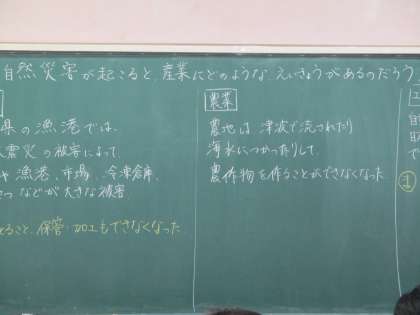 自然災害が起こると、産業にどのような えいきょうがあるのだろう
県の漁港では、
震災の被害によって、
漁港、市場、冷凍倉庫、
などが大きな被害
ること、保管・加工もできなくなった
農業
農地は、津波で流されたり
海水につかったりして、
農作物を作ることができなくなった。